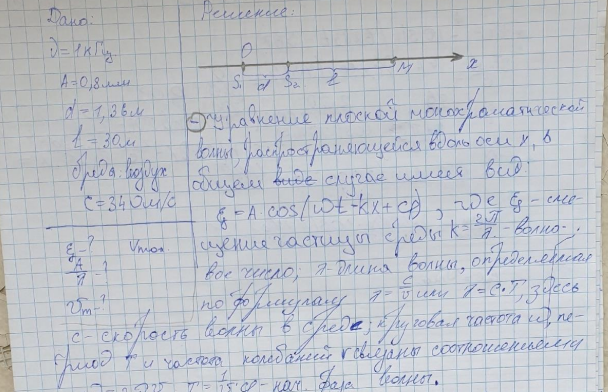 Дано:
ν=1кГц
A=0,8мм
d=1,36м
ℓ=30м
среда: воздух
C=340м/с
ξ-? Vmax
A/λ-?
υm-?
Решение:
O
S₁ d S₂ ℓ M x
уравнение плоской монохроматической
волны, распространяющейся вдоль оси x, в
общем виде случае имеет вид:
ξ=A·cos(ωt-kx+φ), где ξ-сме-
щение частицы среды k=2π/λ-волно-
вое число, λ-длина волны, определяемая
по формулам λ=c/ν или λ=c·T, здесь
c-скорость волны в среде; круговая частота ω, пе-
риод T и частота колебаний ν связаны соотношениями
φ-нач. фаза волны.